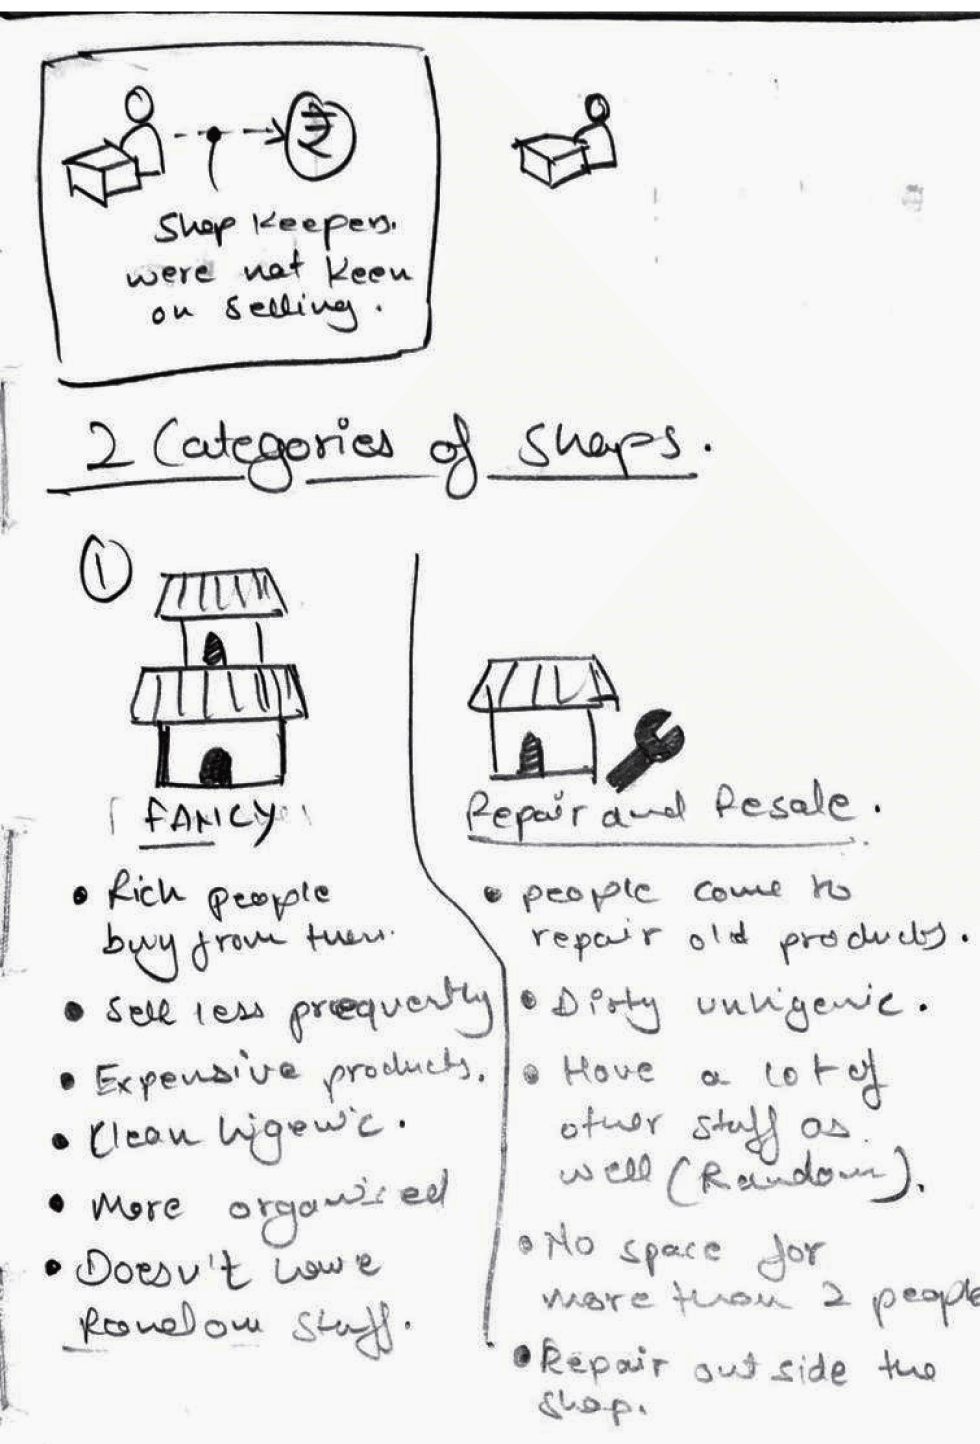 ₹
Shop Keepers.
were not keen
on selling.
2 Categories of Shops.
1
FANCY
Rich people
buy from them.
Sell less prequently
Expensive products.
Clean higenic.
More organised
Doesn't have
Random stuff.
Repair and Resale.
people come to
repair old products.
Dirty unhigenic.
Have a lot of
other stuff as
well (Random).
No space for
more than 2 people
Repair outside the
shop.